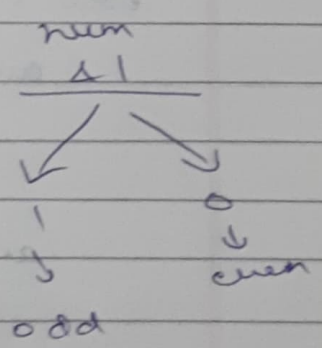 num
& 1
1 0
↓ ↓
odd even